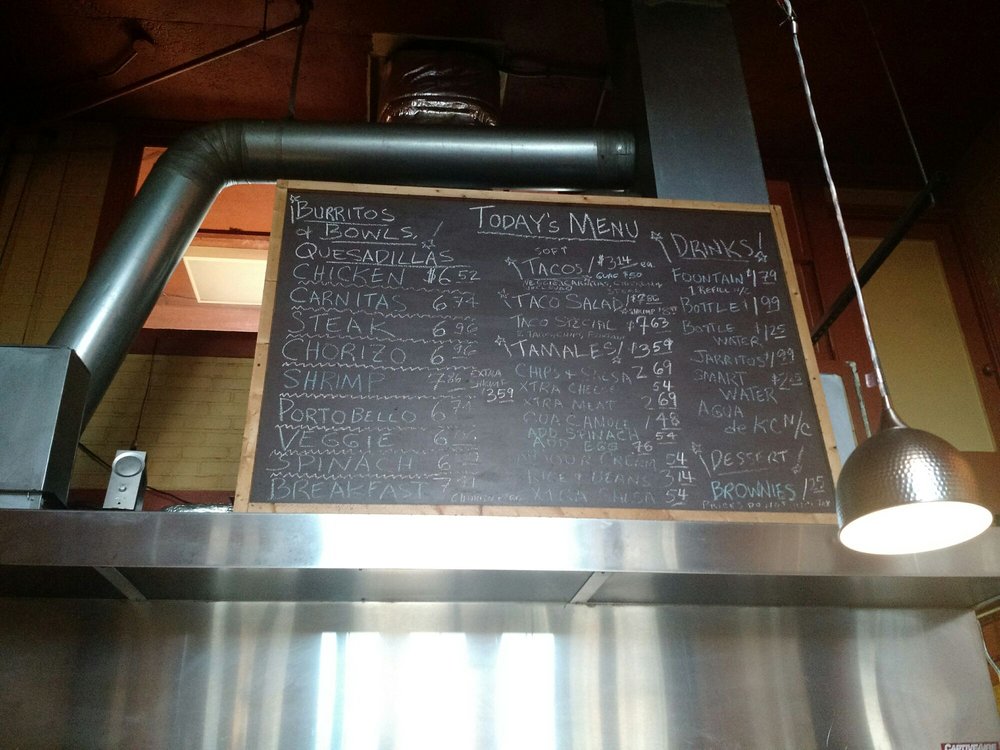 BURRITOS
& BOWLS, !
QUESADILLAS
CHICKEN $6.52
CARNITAS 6.74
STEAK 6.96
CHORIZO 6.96
SHRIMP 7.86 EXTRA SHRIMP $3.59
PORTOBELLO 6.74
VEGGIE 6
SPINACH 6
BREAKFAST 7
TODAY'S MENU
SOFT
TACOS / $3.14 ea.
TACO SALAD / $7.86
TACO SPECIAL $7.63
TAMALES / $3.59
CHIPS & SALSA 2.69
XTRA CHEESE .54
XTRA MEAT 2.69
GUACAMOLE 1.48
ADD SPINACH .54
EGG .76
SOUR CREAM .54
BEANS 3.14
XTRA SALSA .54
DRINKS!
FOUNTAIN $1.79
1 REFILL N/C
BOTTLE $1.99
BOTTLE
WATER $1.25
JARRITOS $1.99
SMART
WATER
AGUA
de KC N/C
DESSERT!
BROWNIES 1.25
PRICES DO NOT
CAPTIVEAIRE